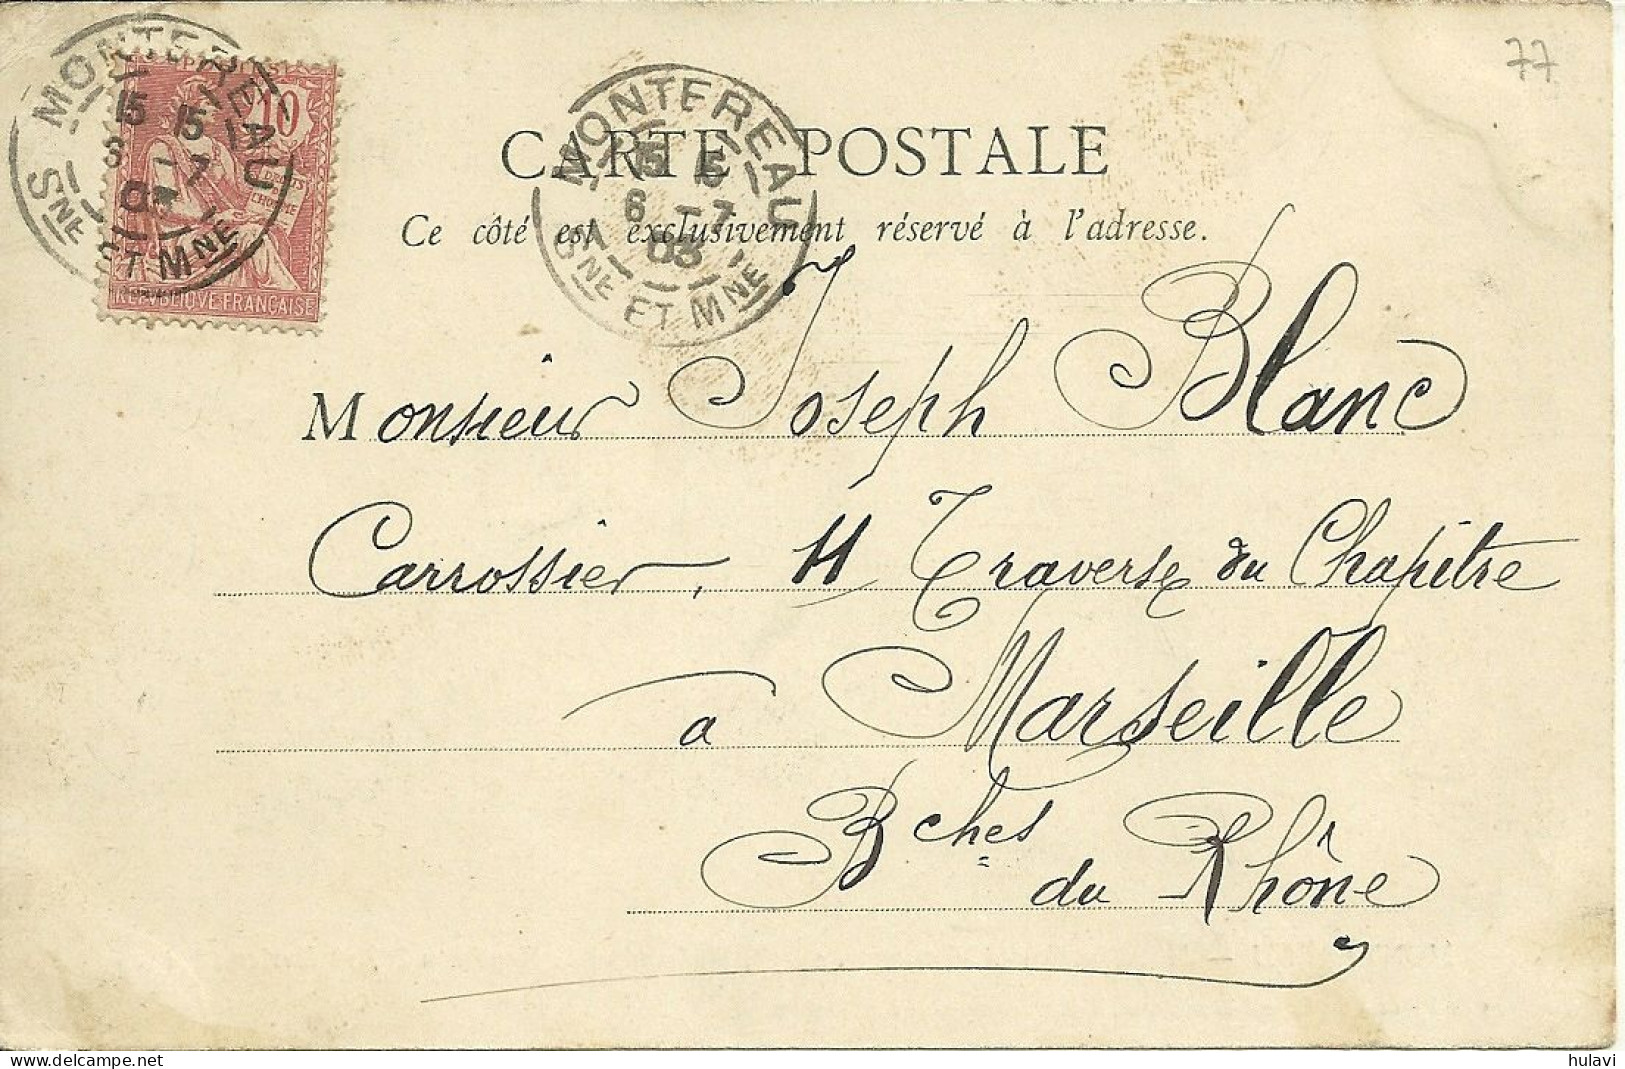 77
MONTEREAU
15 15
6 -7
0
SNE ET MNE
POSTES
10
DROITS
L'HOMME
REPVBLIQVE FRANÇAISE
MONTEREAU
15 15
6 -7
03
SNE ET MNE
CARTE POSTALE
Ce côté est exclusivement réservé à l'adresse.
Monsieur Joseph Blanc
Carrossier, 11 Traverse du Chapitre
a Marseille
Bches du Rhône
hulavi